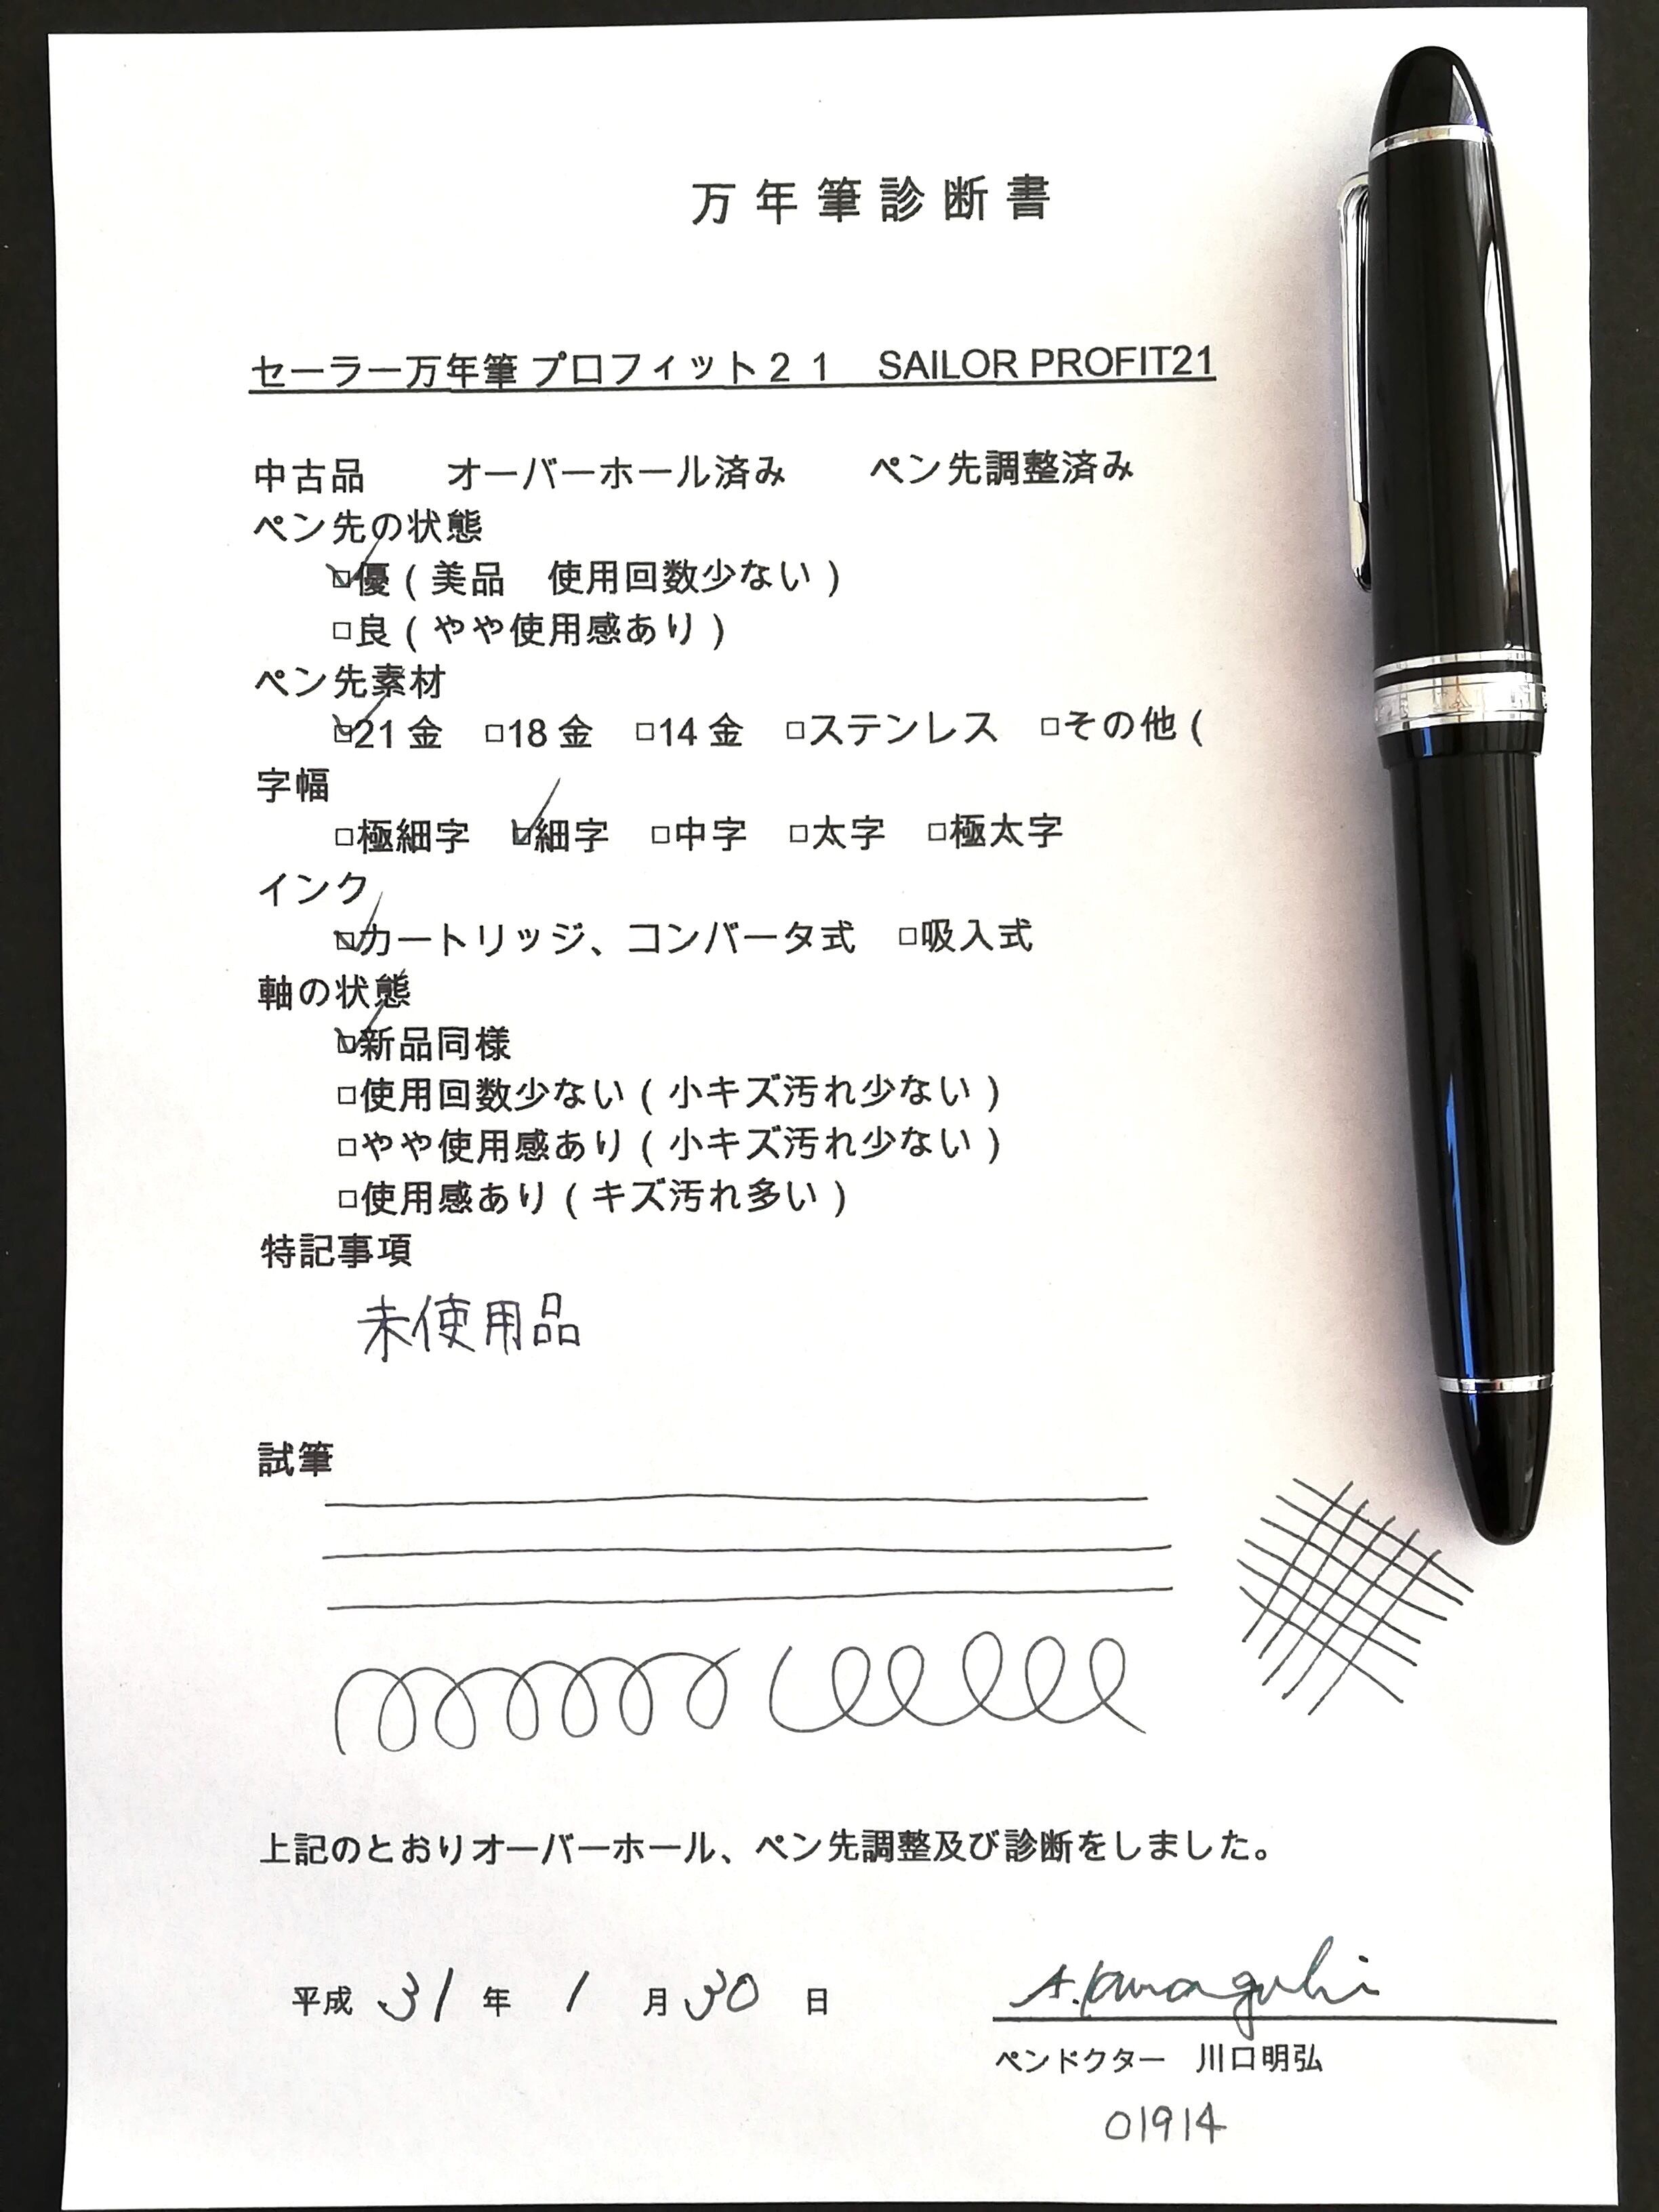 万年筆診断書
セーラー万年筆 プロフィット２１　SAILOR PROFIT21
中古品　　オーバーホール済み　　ペン先調整済み
ペン先の状態
☑優（美品　使用回数少ない）
□良（やや使用感あり）
ペン先素材
☑21 金　□18 金　□14 金　□ステンレス　□その他（
字幅
□極細字　☑細字　□中字　□太字　□極太字
インク
☑カートリッジ、コンバータ式　□吸入式
軸の状態
☑新品同様
□使用回数少ない（小キズ汚れ少ない）
□やや使用感あり（小キズ汚れ少ない）
□使用感あり（キズ汚れ多い）
特記事項
未使用品
試筆
上記のとおりオーバーホール、ペン先調整及び診断をしました。
平成 31 年 1 月 30 日
A. Kawaguchi
ペンドクター　川口明弘
01914